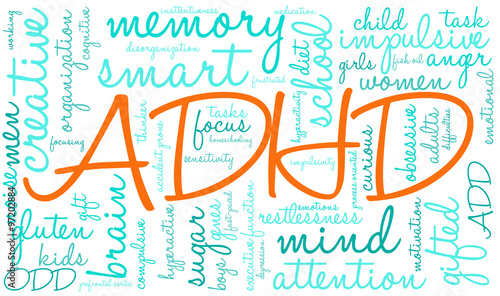 inattentiveness
memory
child
task
working
cognitive
organization
creative
disorganization
impulsive
smart
frustrated
diet
school
girls
fish oil
anger
women
emotional
men
ADHD
focusing
thinker
accident prone
tasks
focus
homeschooling
sensitivity
hyperactivity
impulsivity
curious
process oriented
obsessive
adults
difficulties
ADD
gift
brain
compulsive
hyperactive
sugar
genes
boys
fast-paced
executive function
emotions
restlessness
depression
mind
attention
gifted
motivation
gluten
kids
ODD
prefrontal cortex
Adobe Stock | #97202884